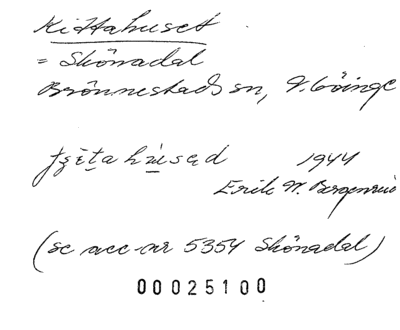 Kittahuset
= Skönadal
Brönnestads sn, V. Göinge
húsed 1944
Erik W. Bergenrud
(se acc nr 5354 Skönadal)
00025100